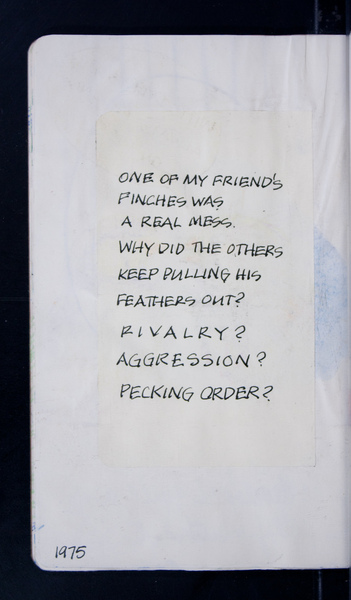 ONE OF MY FRIEND'S
FINCHES WAS
A REAL MESS.
WHY DID THE OTHERS
KEEP PULLING HIS
FEATHERS OUT?
RIVALRY?
AGGRESSION?
PECKING ORDER?
1975